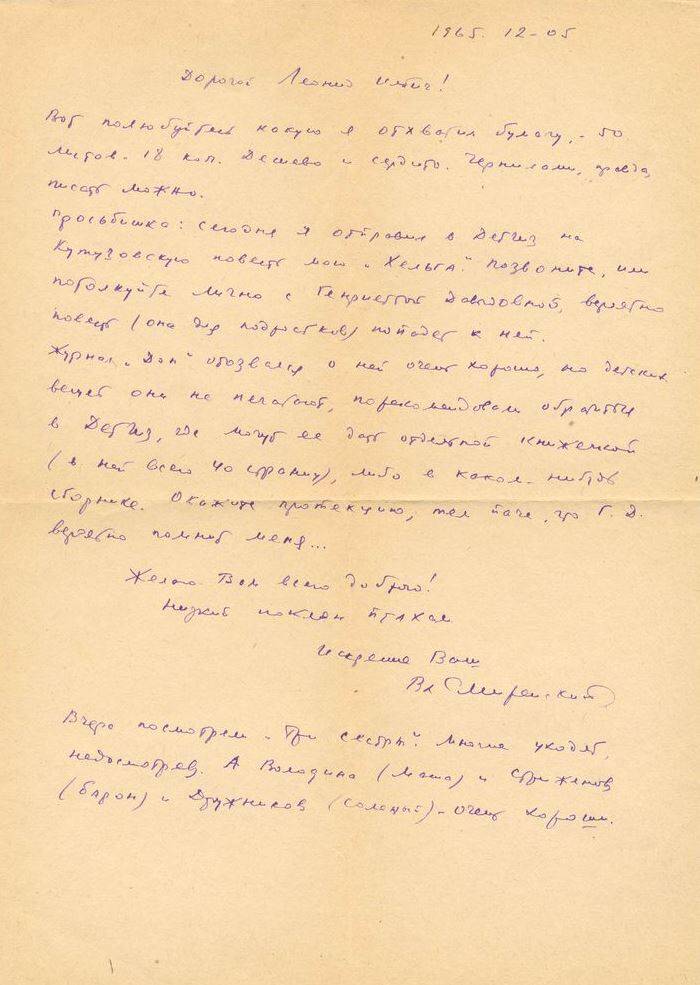 1965. 12-05
Дорогой Леонид Ильич!
Вот полюбуйтесь какую я отхватил бумагу, - 50
листов - 18 коп. Дешево и сердито. Чернилами, правда,
писать можно.
Просьбишка: сегодня я отправил в Детгиз на
Кутузовскую повесть мою „Хельга". Позвоните, или
потолкуйте лично с Генриеттой Давыдовной, вероятно
повесть (она для подростков) попадет к ней.
Журнал „Дон" отозвался о ней очень хорошо, но детских
вещей они не печатают, порекомендовали обратиться
в Детгиз, где могут ее дать отдельной книжечкой
(в ней всего 40 страниц), либо в каком-нибудь
сборнике. Окажите протекцию, тем паче, что Г. Д.
вероятно помнит меня...
Желаю Вам всего доброго!
Низкий поклон птахам
Искренне Ваш
Вл Смиренский
Вчера посмотрел „Три сестры". Многие уходят,
недосмотрев. А Володина (Маша) и Стриженов
(барон) и Дружников (Соленый) - очень хороши.